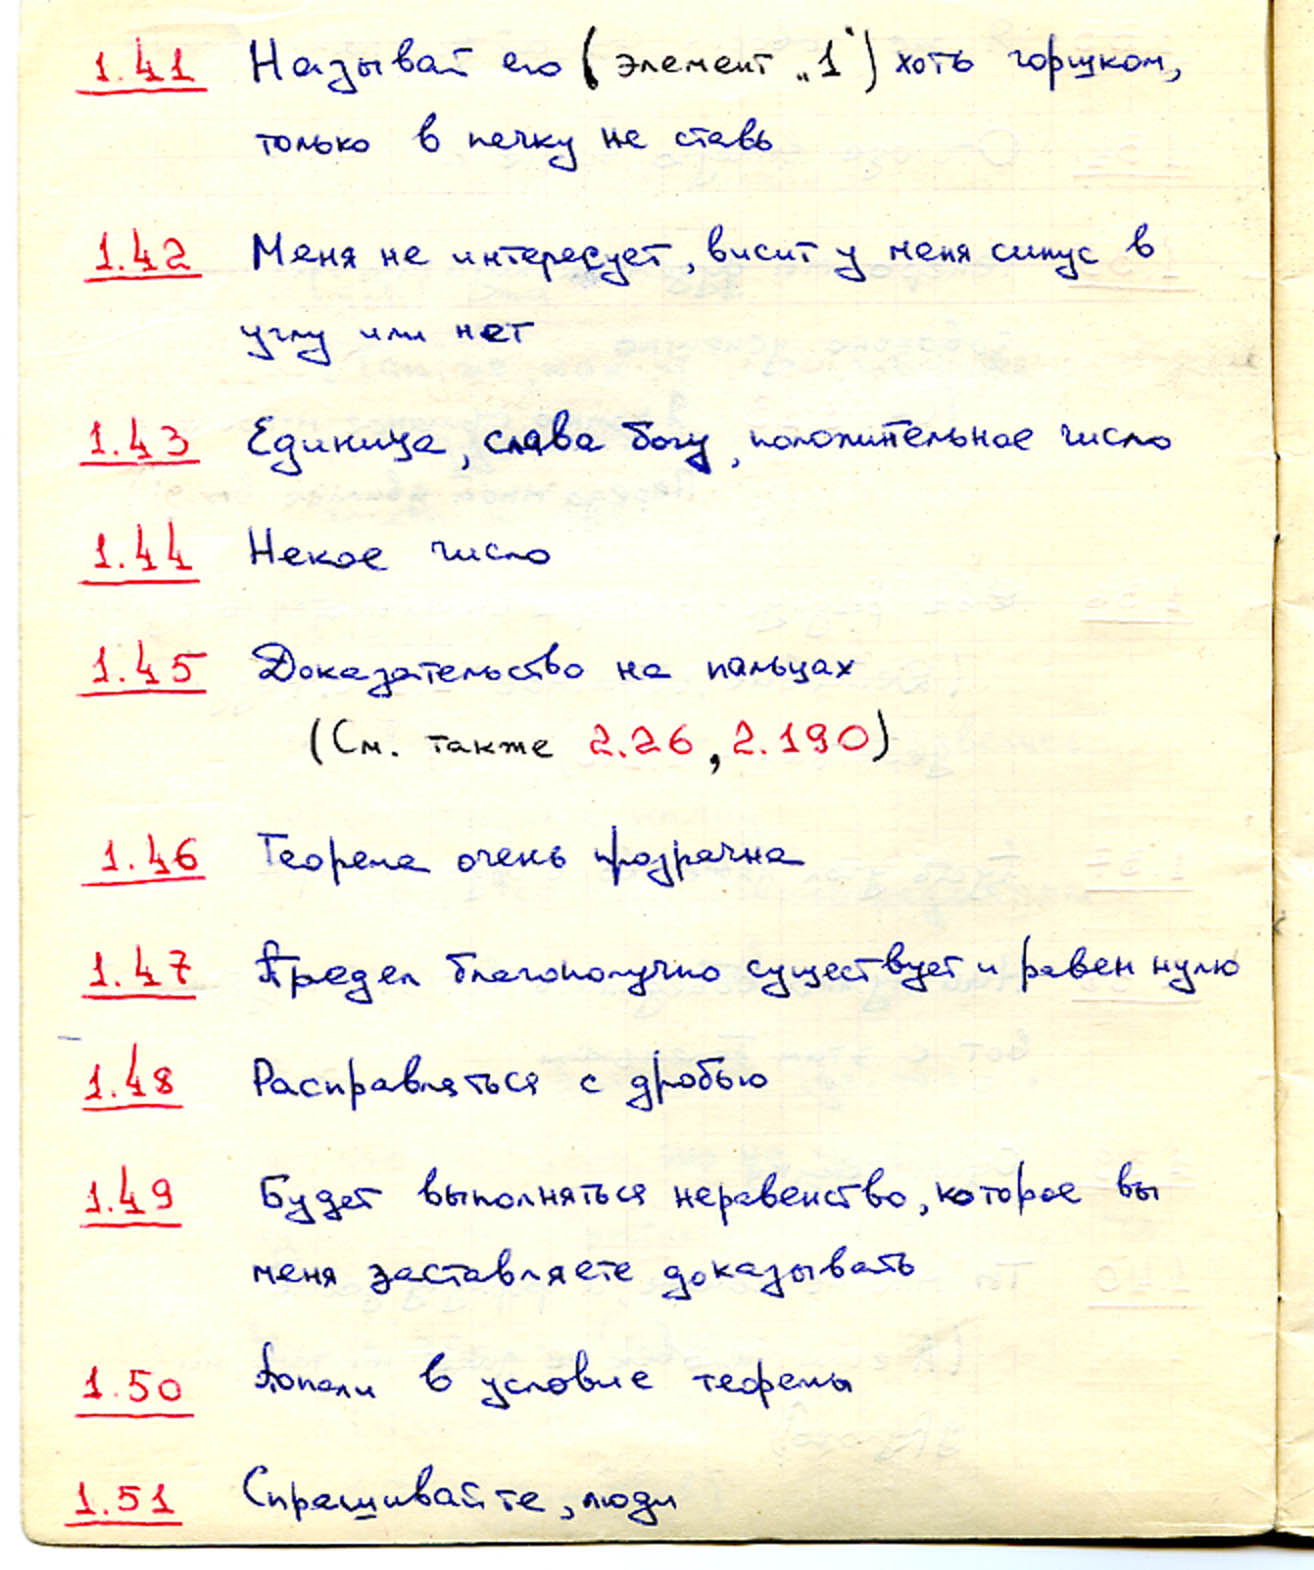 1.41 Называй его (элемент „1“) хоть горшком,
только в печку не ставь
1.42 Меня не интересует, висит у меня синус в
углу или нет
1.43 Единица, слава богу, положительное число
1.44 Некое число
1.45 Доказательство на пальцах
(См. также 2.26, 2.190)
1.46 Теорема очень прозрачна
1.47 Предел благополучно существует и равен нулю
1.48 Расправляться с дробью
1.49 Будет выполняться неравенство, которое вы
меня заставляете доказывать
1.50 Попали в условие теоремы
1.51 Спрашивайте, люди